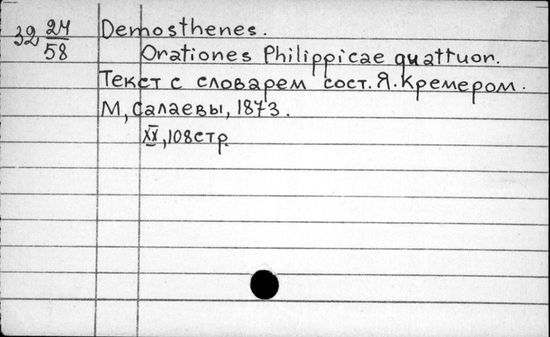 32 24/58
Demosthenes.
Orationes Philippicae quattuor.
Текст с словарем сост. Я. Кремером.
М, Салаевы, 1873.
XX, 108 стр.